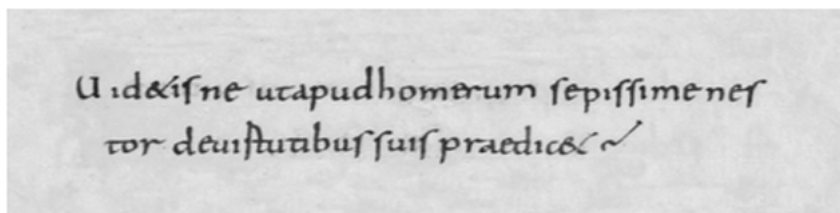 Uid&isne utapudhomerum sepissimenes
tor deuirtutibus suis praedic&?